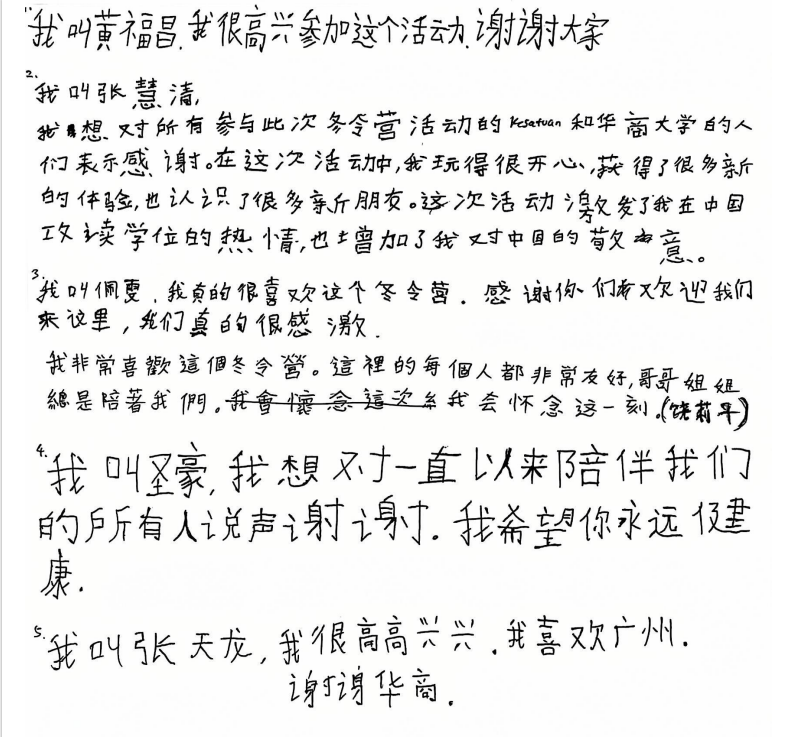 1. 我叫黄福昌.我很高兴参加这个活动.谢谢大家
2.
我叫张慧清,
我想对所有参与此次冬令营活动的Kesatuan和华商大学的人
们表示感谢。在这次活动中,我玩得很开心,获得了很多新
的体验,也认识了很多新朋友。这次活动激发了我在中国
攻读学位的热情,也增加了我对中国的敬意。
3.
我叫佩雯,我真的很喜欢这个冬令营. 感谢你们有欢迎我们
来这里,我们真的很感激.
我非常喜歡這個冬令營。這裡的每個人都非常友好,哥哥姐姐
總是陪著我們。我會懷念這次 我会怀念这一刻。(饶莉平)
4.
我叫圣豪,我想对一直以来陪伴我们
的所有人说声谢谢. 我希望你永远健
康.
5.
我叫张天龙,我很高高兴兴.我喜欢广州.
谢谢华商.